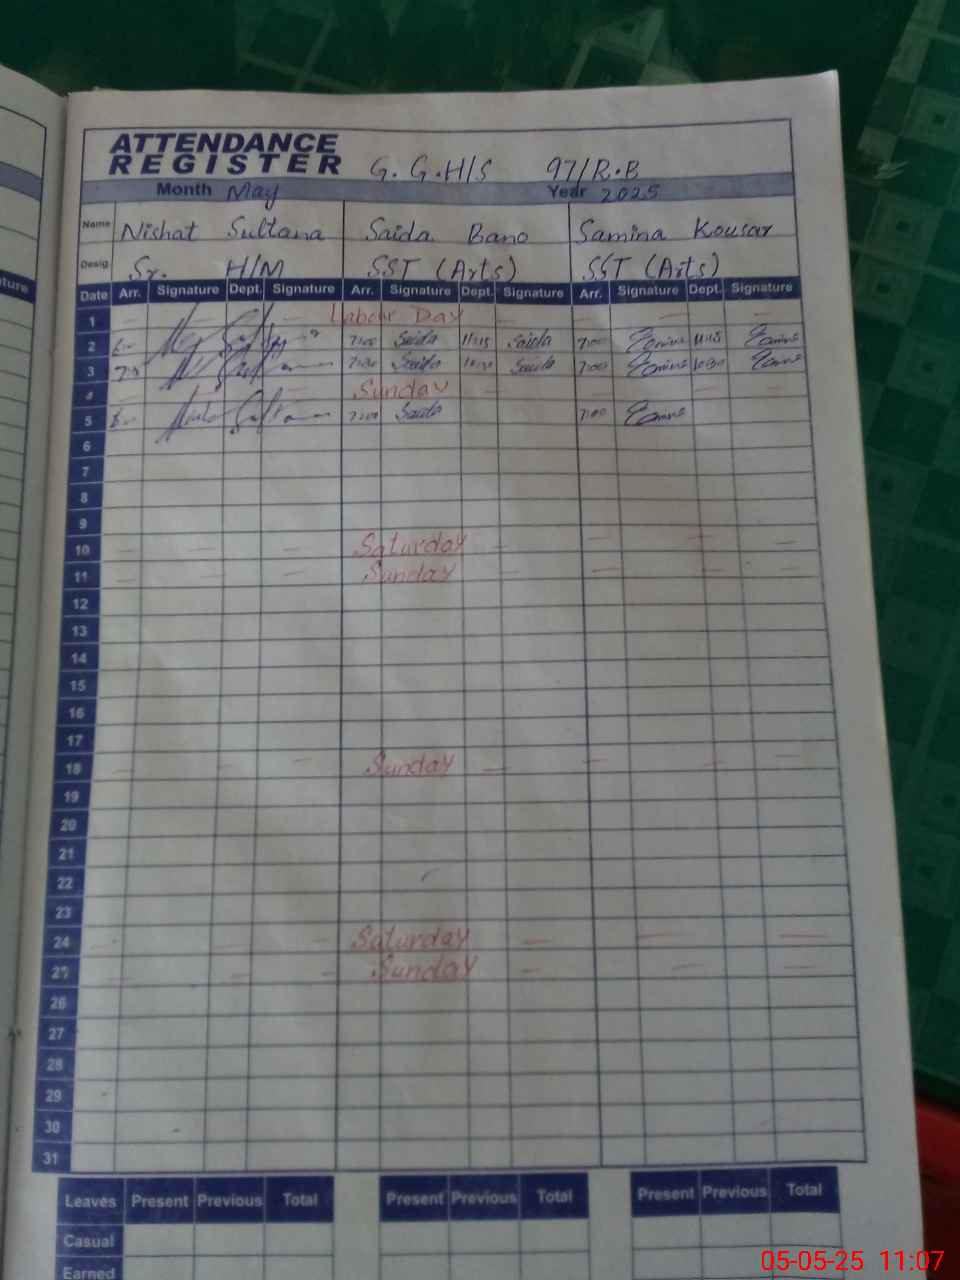 ture
ATTENDANCE
REGISTER G. G.H/S 97/R.B
Month May Year 2025
Name Nishat Sultana Saida Bano Samina Kousar
Desig. Sr. H/M SST (Arts) SST (Arts)
Date Arr. Signature Dept. Signature Arr. Signature Dept. Signature Arr. Signature Dept. Signature
1 Labour Day
2 7:00 Saida 11:15 Saida 7:00 11:15
3 7:00 Saida 10:30 Saida 7:00 10:30
4 Sunday
5 7:00 Saida 7:00
6
7
8
9
10 Saturday
11 Sunday
12
13
14
15
16
17
18 Sunday
19
20
21
22
23
24 Saturday
25 Sunday
26
27
28
29
30
31
Leaves Present Previous Total Present Previous Total Present Previous Total
Casual
Earned
05-05-25 11:07